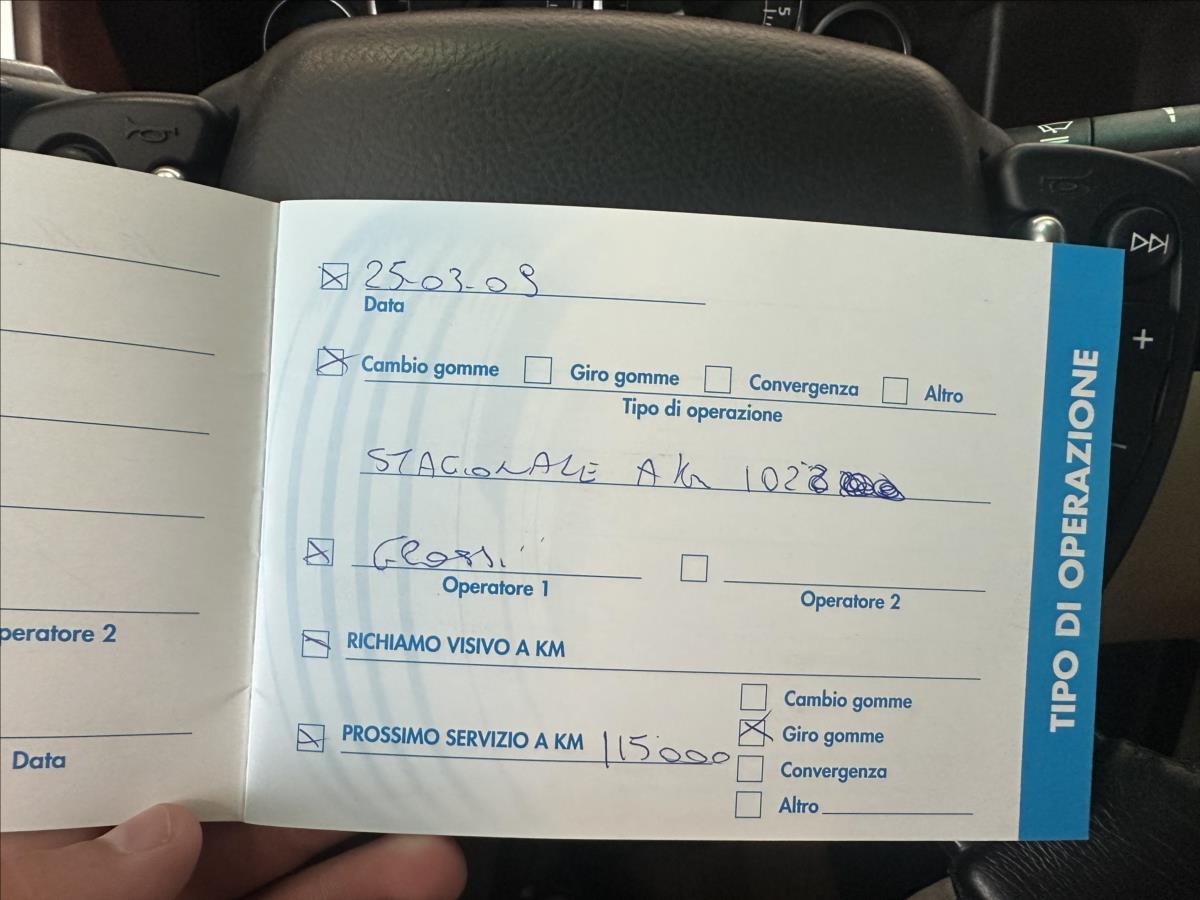 5
peratore 2
Data
25-03-09
Data
Cambio gomme Giro gomme Convergenza Altro
Tipo di operazione
STAGIONALE A Km
Operatore 1 Operatore 2
RICHIAMO VISIVO A KM
PROSSIMO SERVIZIO A KM 115000
Cambio gomme
Giro gomme
Convergenza
Altro
TIPO DI OPERAZIONE